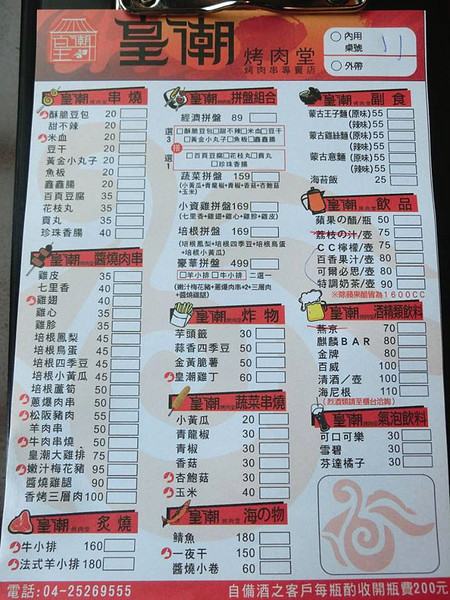 皇潮 烤肉堂
烤肉串專賣店
內用
桌號
11
外帶
皇潮 串燒
酥脆豆包 20
甜不辣 20
米血 20
豆干 20
黃金小丸子 20
魚板 20
鑫鑫腸 20
百頁豆腐 35
花枝丸 35
貢丸 35
珍珠香腸 40
皇潮 醬燒肉串
雞皮 35
七里香 40
雞翅 40
雞心 40
雞胗 40
培根鳳梨 45
培根鳥蛋 45
培根四季豆 45
培根小黃瓜 45
培根蘆筍 50
蔥爆肉串 50
松阪豬肉 55
羊肉串 50
牛肉串燒 50
皇潮大雞排 75
嫩汁梅花豬 95
醬燒雞腿 90
香烤三層肉 100
皇潮 炙燒
牛小排 160
法式羊小排 180
皇潮 拼盤組合
經濟拼盤 89
選3樣
酥脆豆包 甜不辣 米血 豆干
黃金小丸子 魚板 鑫鑫腸
選1
百頁豆腐 花枝丸 貢丸
珍珠香腸
蔬菜拼盤 159
(小黃瓜+青龍椒+青椒+香菇+杏鮑菇
+玉米)
小資雞拼盤 169
(七里香+雞翅+雞心+雞胗+雞皮)
培根拼盤 169
(培根鳳梨+培根四季豆+培根鳥蛋
+培根小黃瓜)
豪華拼盤 499
羊小排 牛小排 二選一
(嫩汁梅花豬+蔥爆肉串×2+三層肉
+醬燒雞腿)
皇潮 炸物
芋頭籤 50
蒜香四季豆 50
黃金脆薯 50
皇潮雞丁 60
皇潮 蔬菜串燒
小黃瓜 20
青龍椒 30
青椒 30
香菇 30
杏鮑菇 30
玉米 40
皇潮 海の物
鯖魚 180
一夜干 150
醬燒小卷 60
皇潮 副食
蒙古王子麵(原味) 55
(辣味) 55
蒙古雞絲麵(原味) 55
(辣味) 55
蒙古意麵(原味) 55
(辣味) 55
海苔飯 25
皇潮 飲品
蘋果の醋/瓶 50
荔枝の汁/壺 75
CC檸檬/壺 75
百香果汁/壺 75
可爾必思/壺 75
特調奶茶/壺 90
※除蘋果醋皆為1600CC
皇潮 酒精類飲料
燕京 70
麒麟BAR 80
金牌 80
百威 80
清酒/壺 100
海尼根 110
(烈酒類請至櫃台洽詢)
皇潮 氣泡飲料
可口可樂 30
雪碧 30
芬達橘子 30
電話:04-25269555
自備酒之客戶每瓶酌收開瓶費200元